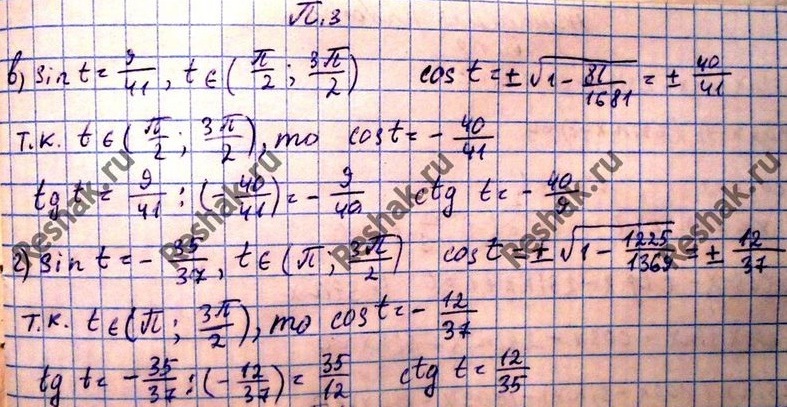 П.3
в) sin t = 9/41, t ∈ (π/2; 3π/2) cos t = ± √(1 − 81/1681) = ± 40/41
т.к. t ∈ (π/2; 3π/2), то cos t = − 40/41
tg t = 9/41 : (− 40/41) = − 9/40 ctg t = − 40/9
г) sin t = − 35/37, t ∈ (π; 3π/2) cos t = ± √(1 − 1225/1369) = ± 12/37
т.к. t ∈ (π; 3π/2), то cos t = − 12/37
tg t = − 35/37 : (− 12/37) = 35/12 ctg t = 12/35
Reshak.ru
Reshak.ru
Reshak.ru
Reshak.ru
Reshak.ru
Reshak.ru